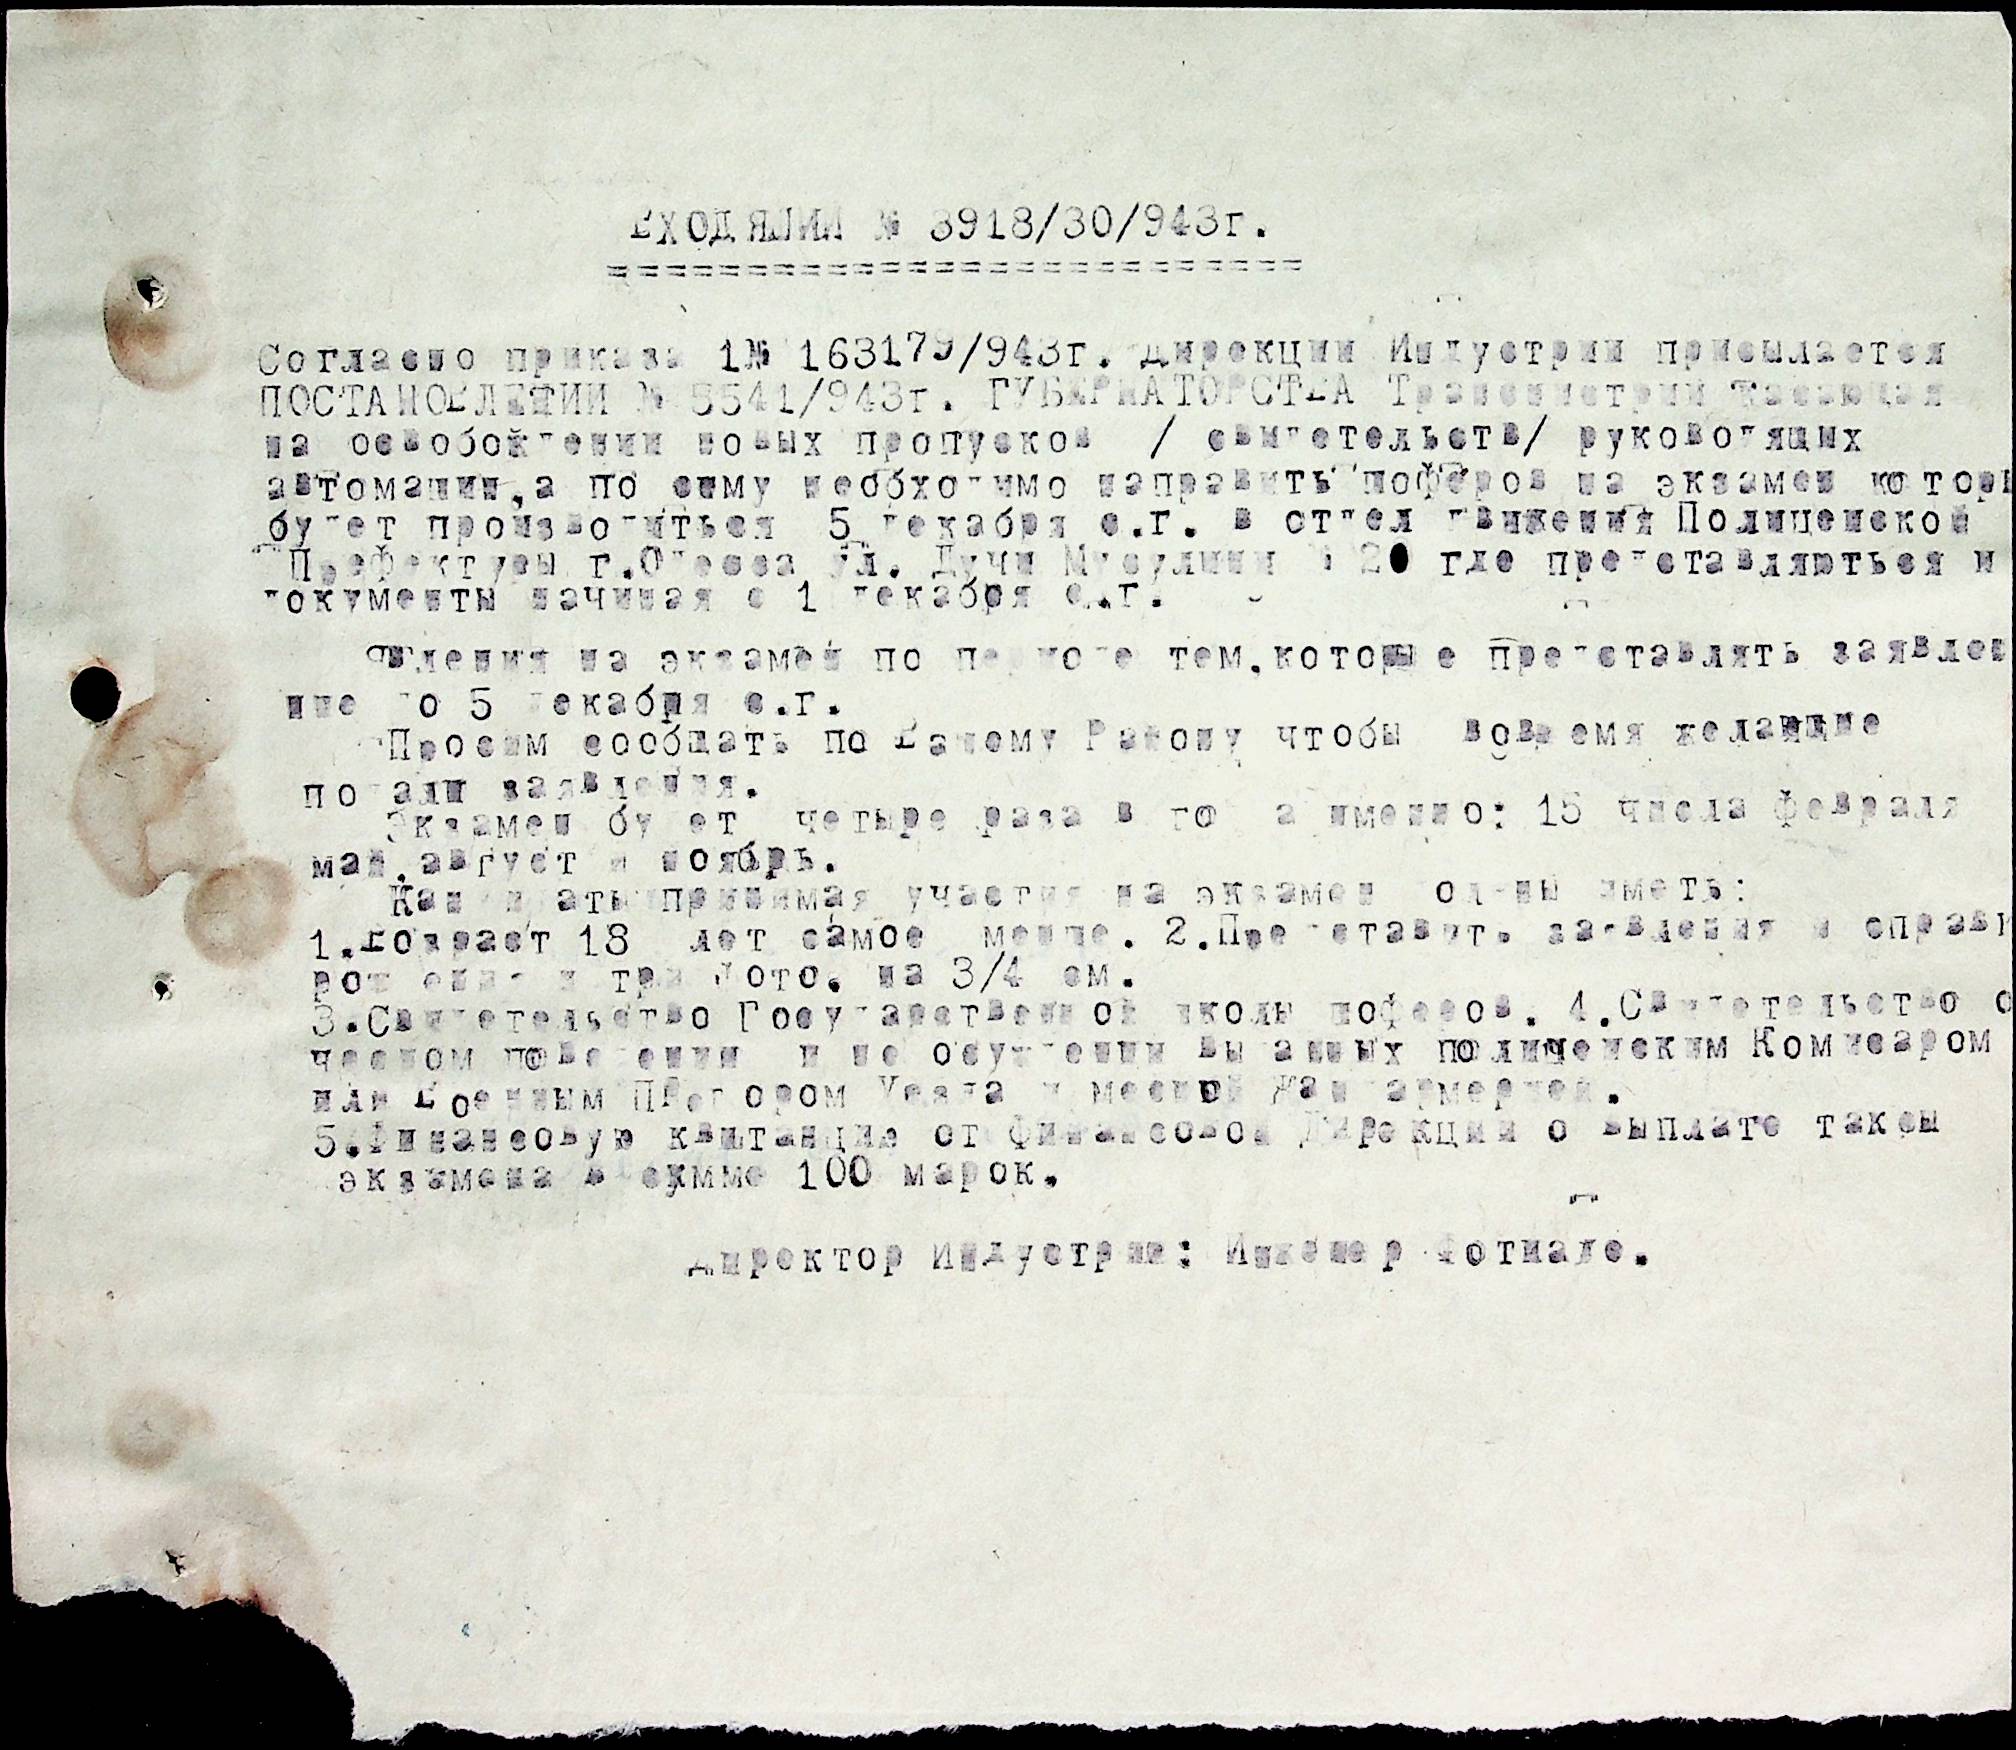 ВХОДЯЩИЙ № 3918/30/943г.
=========================
Согласно приказа 1№ 163179/943г. Дирекции Индустрии присылается
ПОСТАНОВЛЕНИИ № 5541/943г. ГУБЕРНАТОРСТВА Транснистрии касающая
на освобождении новых пропусков / свидетельств/ руководящих
автомашин,а по симу необходимо направить шоферов на экзамен которы
будет производиться 5 декабря с.г. в отдел движения Полицейской
Префектуры г.Одесса ул. Дучи Мусулини № 20 где представляються и
документы начиная с 1 декабря с.г.
Явления на экзамен по периоде тем,которые представлять заявлен
ние до 5 декабря с.г.
Просим сообщать по Вашему Району чтобы вовремя желающие
подали заявления.
Экзамен будет четыре раза в год а именно: 15 числа февраля
мая,август и ноябрь.
Кандидаты принимая участия на экзамен должны иметь:
1.Возраст 18 лет самое менше. 2.Представить заявления и справк
рождения и три фото. на 3/4 см.
3.Свидетельство Государственной школы шоферов. 4.Свидетельство о
чесном поведении и не осуждении выданных полицейским Комисаром
или Военным Претором Уезда и месной Жандармерией.
5.Финансовую квитанцию от Финансовой Дирекции о выплате таксы
экзамена в сумме 100 марок.
Директор Индустрии: Инженер Фотиаде.